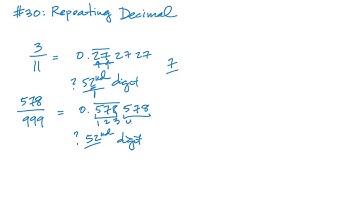 #30: Repeating Decimal
3/11 = 0.27 27 27
7
? 52nd digit
1
578/999 = 0.578 578
1 2 3 4
? 52nd digit